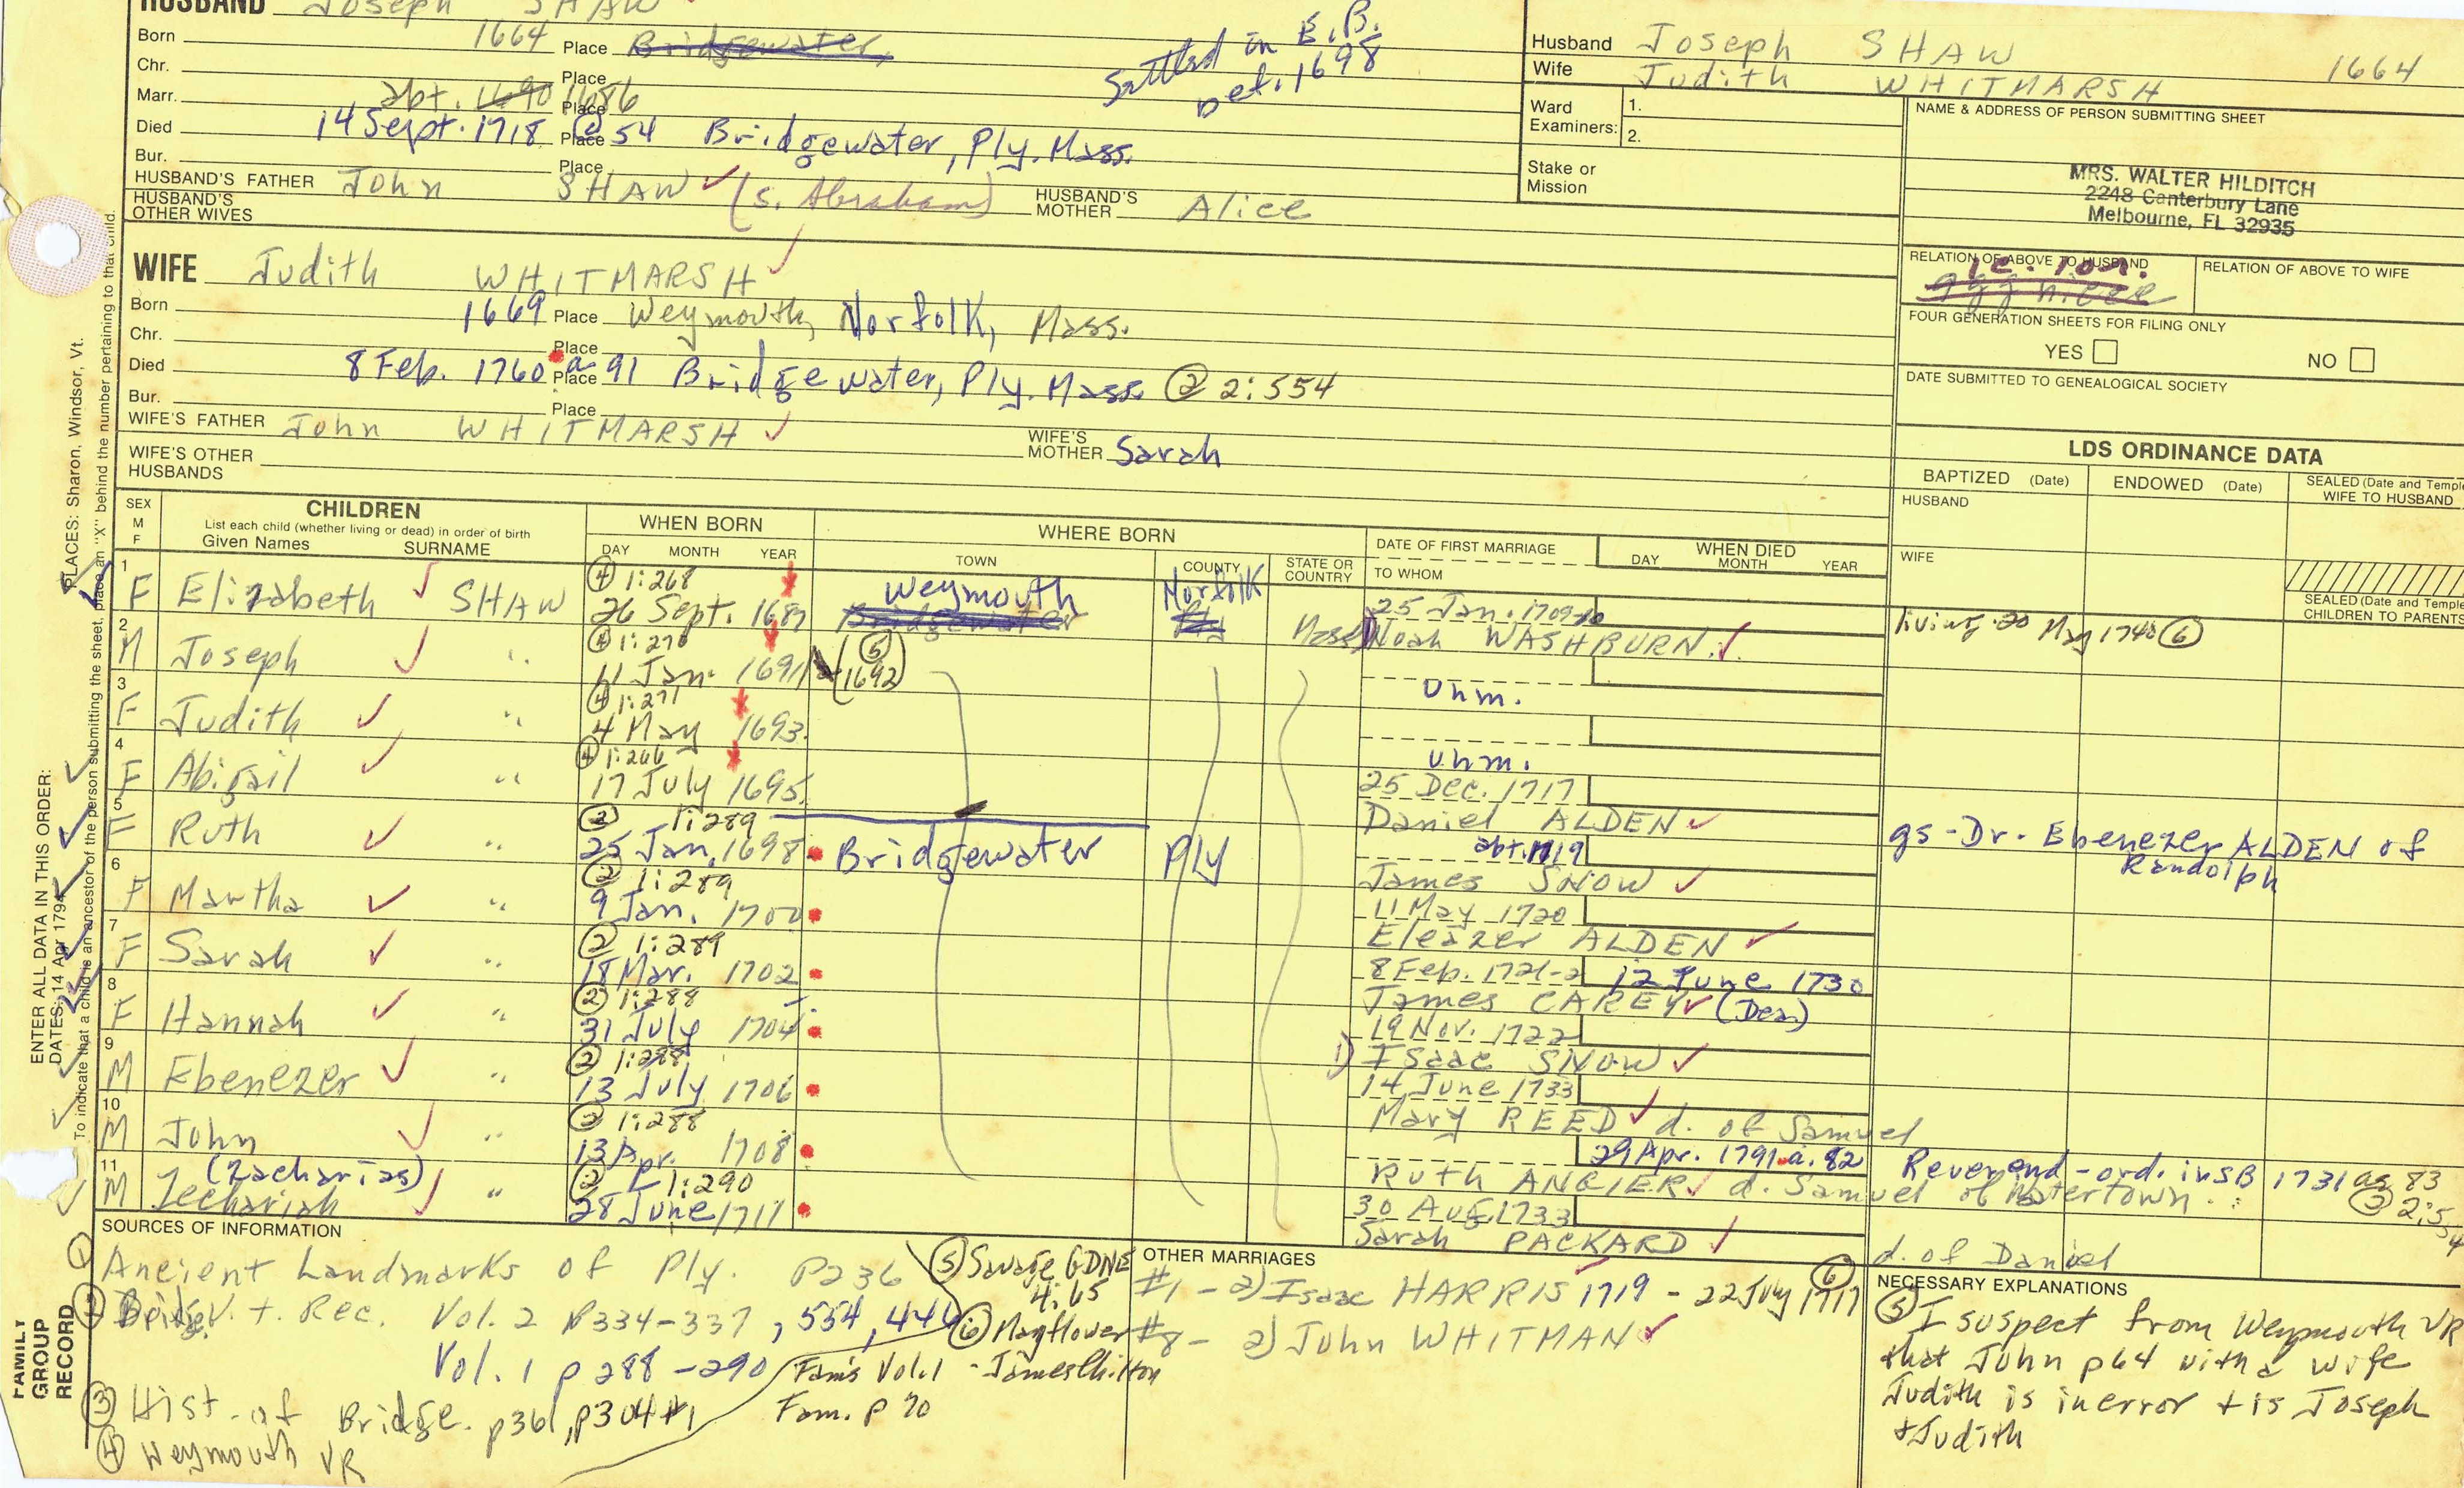 HUSBAND Joseph SHAW
Born 1664 Place Bridgewater,
Chr. Place
Marr. abt. 1690 1686 Place
Died 14 Sept. 1718 @ 54 Place Bridgewater, Ply. Mass.
Bur. Place
Settled in E.B.
bef. 1698
HUSBAND'S FATHER John SHAW (s. Abraham) HUSBAND'S MOTHER Alice
HUSBAND'S OTHER WIVES
Husband Joseph SHAW 1664
Wife Judith WHITMARSH
Ward Examiners: 1.
2.
Stake or Mission
NAME & ADDRESS OF PERSON SUBMITTING SHEET
MRS. WALTER HILDITCH
2248 Canterbury Lane
Melbourne, FL 32935
RELATION OF ABOVE TO HUSBAND
ggg niece
RELATION OF ABOVE TO WIFE
FOUR GENERATION SHEETS FOR FILING ONLY
YES NO
DATE SUBMITTED TO GENEALOGICAL SOCIETY
WIFE Judith WHITMARSH
Born 1669 Place Weymouth, Norfolk, Mass.
Chr. Place
Died 8 Feb. 1760 a 91 Place Bridgewater, Ply. Mass. ② 2:554
Bur. Place
WIFE'S FATHER John WHITMARSH WIFE'S MOTHER Sarah
WIFE'S OTHER HUSBANDS
LDS ORDINANCE DATA
BAPTIZED (Date) ENDOWED (Date) SEALED (Date and Temple) WIFE TO HUSBAND
HUSBAND
WIFE
SEALED (Date and Temple) CHILDREN TO PARENTS
SEX M F
CHILDREN
List each child (whether living or dead) in order of birth
Given Names SURNAME
WHEN BORN
DAY MONTH YEAR
WHERE BORN
TOWN COUNTY STATE OR COUNTRY
DATE OF FIRST MARRIAGE
TO WHOM
WHEN DIED
DAY MONTH YEAR
1 F Elizabeth SHAW ④ 1:268 26 Sept. 1687 Weymouth Bridgewater Norfolk Ply Mass 25 Jan. 1709-10 Noah WASHBURN living 20 May 1740 ⑥
2 M Joseph " ④ 1:270 11 Jan. 1691 (⑤ 1692) Unm.
3 F Judith " ④ 1:271 4 May 1693 Unm.
4 F Abigail " ④ 1:266 17 July 1695 25 Dec. 1717 Daniel ALDEN gs - Dr. Ebenezer ALDEN of Randolph
5 F Ruth " ② 1:289 25 Jan. 1698 Bridgewater Ply abt. 1719 James SNOW
6 F Martha " ② 1:289 9 Jan. 1700 11 May 1720 Eleazer ALDEN
7 F Sarah " ② 1:289 18 Mar. 1702 8 Feb. 1721-2 12 June 1730 James CAREY (Dea)
8 F Hannah " ② 1:288 31 July 1704 19 Nov. 1722 1) Isaac SNOW
9 M Ebenezer " ② 1:288 13 July 1706 14 June 1733 Mary REED d. of Samuel
10 M John " ② 1:288 13 Apr. 1708 29 Apr. 1791 a. 82 Ruth ANGIER d. Samuel of Watertown Reverend - ord. in SB 1731 ag 83 ② 2:554
11 M (Zacharias) Zechariah " ② 1:290 28 June 1711 30 Aug. 1733 Sarah PACKARD d. of Daniel
SOURCES OF INFORMATION
① Ancient Landmarks of Ply. P236
② Bridge. V. + Rec. Vol. 2 p334-337, 554, 446
Vol. 1 p 288-290
③ Hist. of Bridge. p361, p304
④ Weymouth VR
⑤ Savage GDNE 4:65
⑥ Mayflower Fam's Vol.1 - James Chilton Fam. p 70
OTHER MARRIAGES
#1 - 2) Isaac HARRIS 1719 - 22 July 1717 ⑥
#8 - 2) John WHITMAN
NECESSARY EXPLANATIONS
⑤ I suspect from Weymouth VR
that John p64 with a wife
Judith is in error + is Joseph
+ Judith
ENTER ALL DATA IN THIS ORDER:
DATES: 14 Apr 1794
PLACES: Sharon, Windsor, Vt.
To indicate that a child is an ancestor of the person submitting the sheet, place an "X" behind the number pertaining to that child.
FAMILY GROUP RECORD